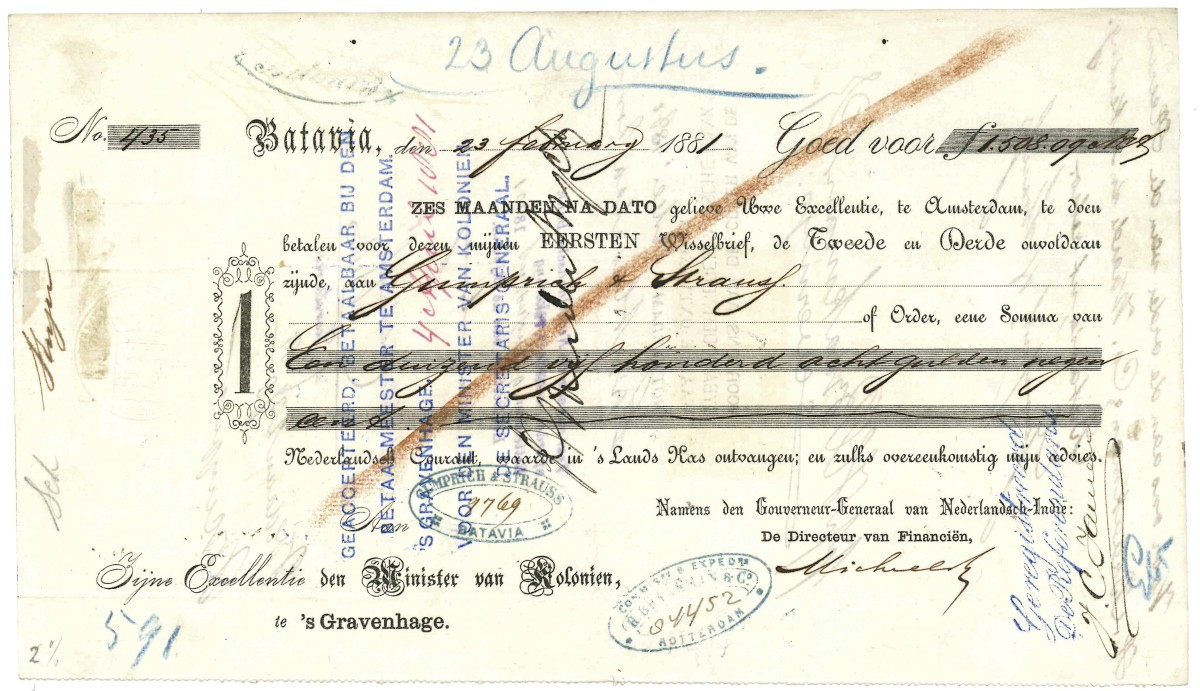 23 Augustus.
No. 435 Batavia, den 23 february 1881 Goed voor f 1.508.09
ZES MAANDEN NA DATO gelieve Uwe Excellentie, te Amsterdam, te doen
betalen voor dezen mijnen EERSTEN Wisselbrief, de Tweede en Derde onvoldaan
zijnde, aan Gumprich & Strauss.
of Order, eene Somma van
1
Een duizend vyf honderd acht gulden negen
cent.
Nederlandsch Courant, waarde in 's Lands Kas ontvangen; en zulks overeenkomstig mijn advies.
Namens den Gouverneur-Generaal van Nederlandsch-Indie:
De Directeur van Financiën,
Aan
Zijne Excellentie den Minister van Kolonien,
te 's Gravenhage.
GEACCEPTEERD, BETAALBAAR BIJ DEN
BETAALMEESTER TE AMSTERDAM.
'S GRAVENHAGE, 4 April 1881
VOOR DEN MINISTER VAN KOLONIEN
DE SECRETARIS GENERAAL.
GUMPRICH & STRAUSS
9769
BATAVIA
COMMISS & EXPEDN
& Co.
94452
ROTTERDAM
Geregistreerd
De Referendaris
591
2%